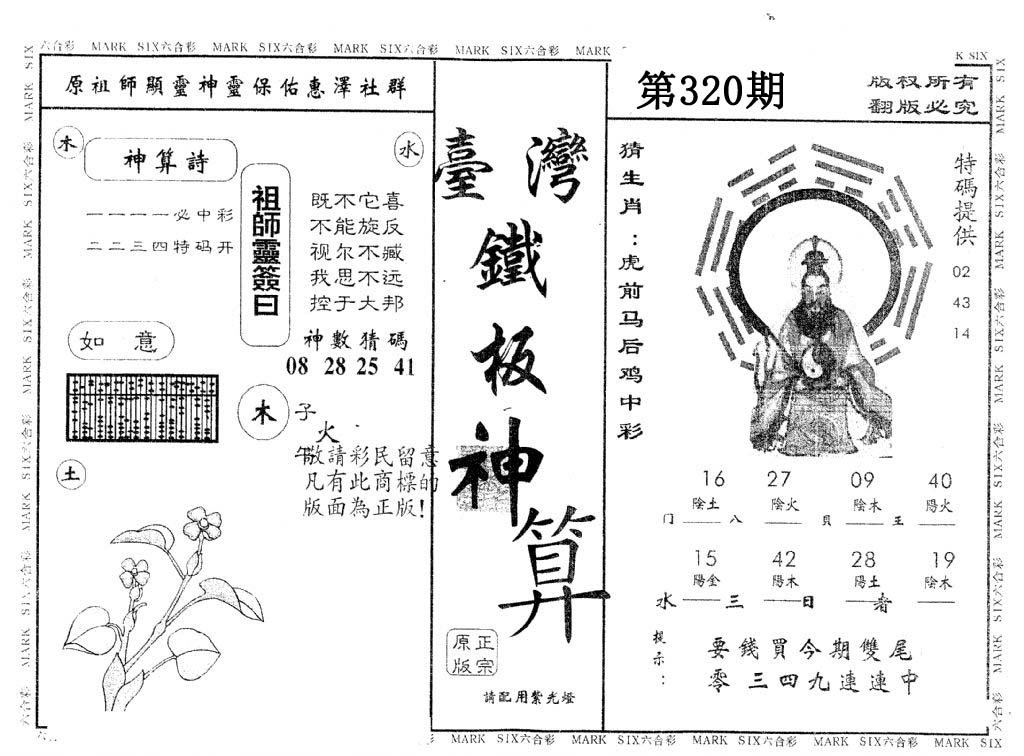 六合彩 MARK SIX六合彩 MARK SIX六合彩 MARK SIX六合彩 MARK SIX六合彩 MARK
K SIX
原祖師顯靈神靈保佑惠澤社群
木
水
神算詩
一一一一必中彩
二二三四特码开
祖師靈簽曰
既不它喜
不能旋反
视尔不臧
我思不远
控于大邦
神數猜碼
08 28 25 41
如意
木
子
火
午
土
敬請彩民留意
凡有此商標的
版面為正版!
臺灣
鐵
板
神
算
正宗
原版
請配用紫光燈
第320期
版权所有
翻版必究
猜生肖:虎前马后鸡中彩
特碼提供
02
43
14
16 27 09 40
陰土 陰火 陰木 陽火
门 八 貝 王
15 42 28 19
陽金 陽木 陽土 陰木
水 三 日 者
提示:
要錢買今期雙尾
零三四九連連中
MARK SIX六合彩 MARK SIX六合彩 MARK SIX六合彩 MARK SIX六合彩 MARK SIX